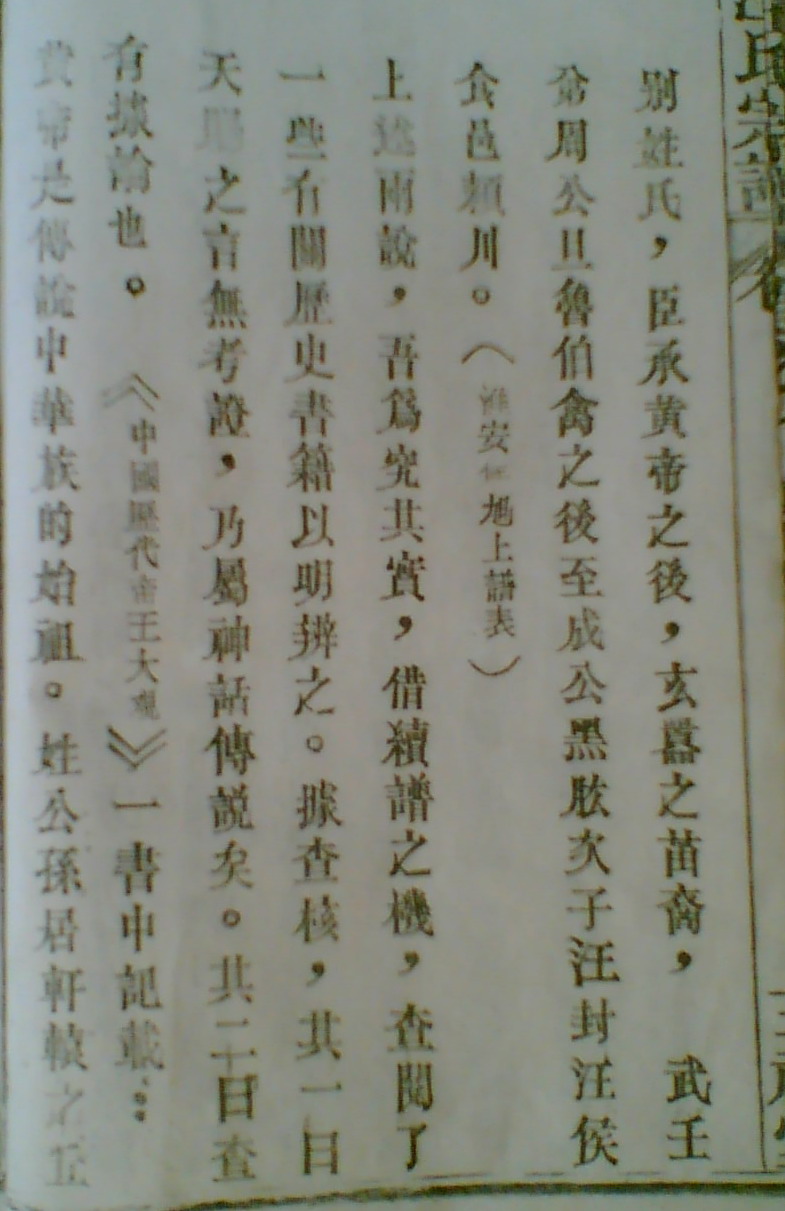 汪氏宗譜
別姓氏，臣承黄帝之後，玄囂之苗裔，　武王
弟周公旦魯伯禽之後至成公黑肱次子汪封汪侯
食邑潁川。（淮安旭上譜表）
上述兩說，吾爲究其實，借續譜之機，查閱了
一些有關歷史書籍以明辨之。據查核，共一曰
天賜之言無考證，乃屬神話傳説矣。共二曰查
有據論也。　《中國歷代帝王大觀》一書中記載：
黄帝是傳說中華族的始祖。姓公孫居軒轅之丘